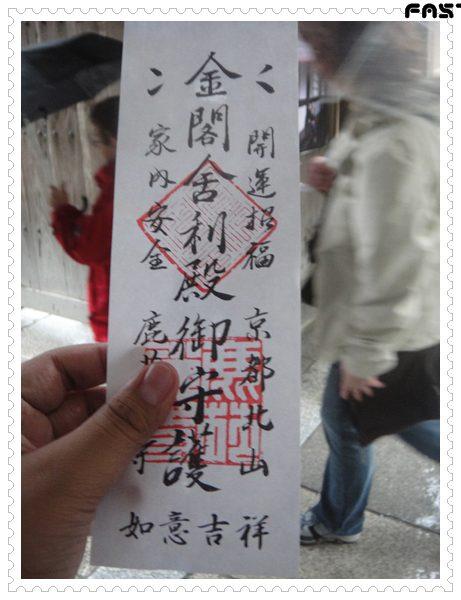 FAST
開運招福
京都北山
金閣舎利殿御守護
家内安全
鹿
寺
如意吉祥